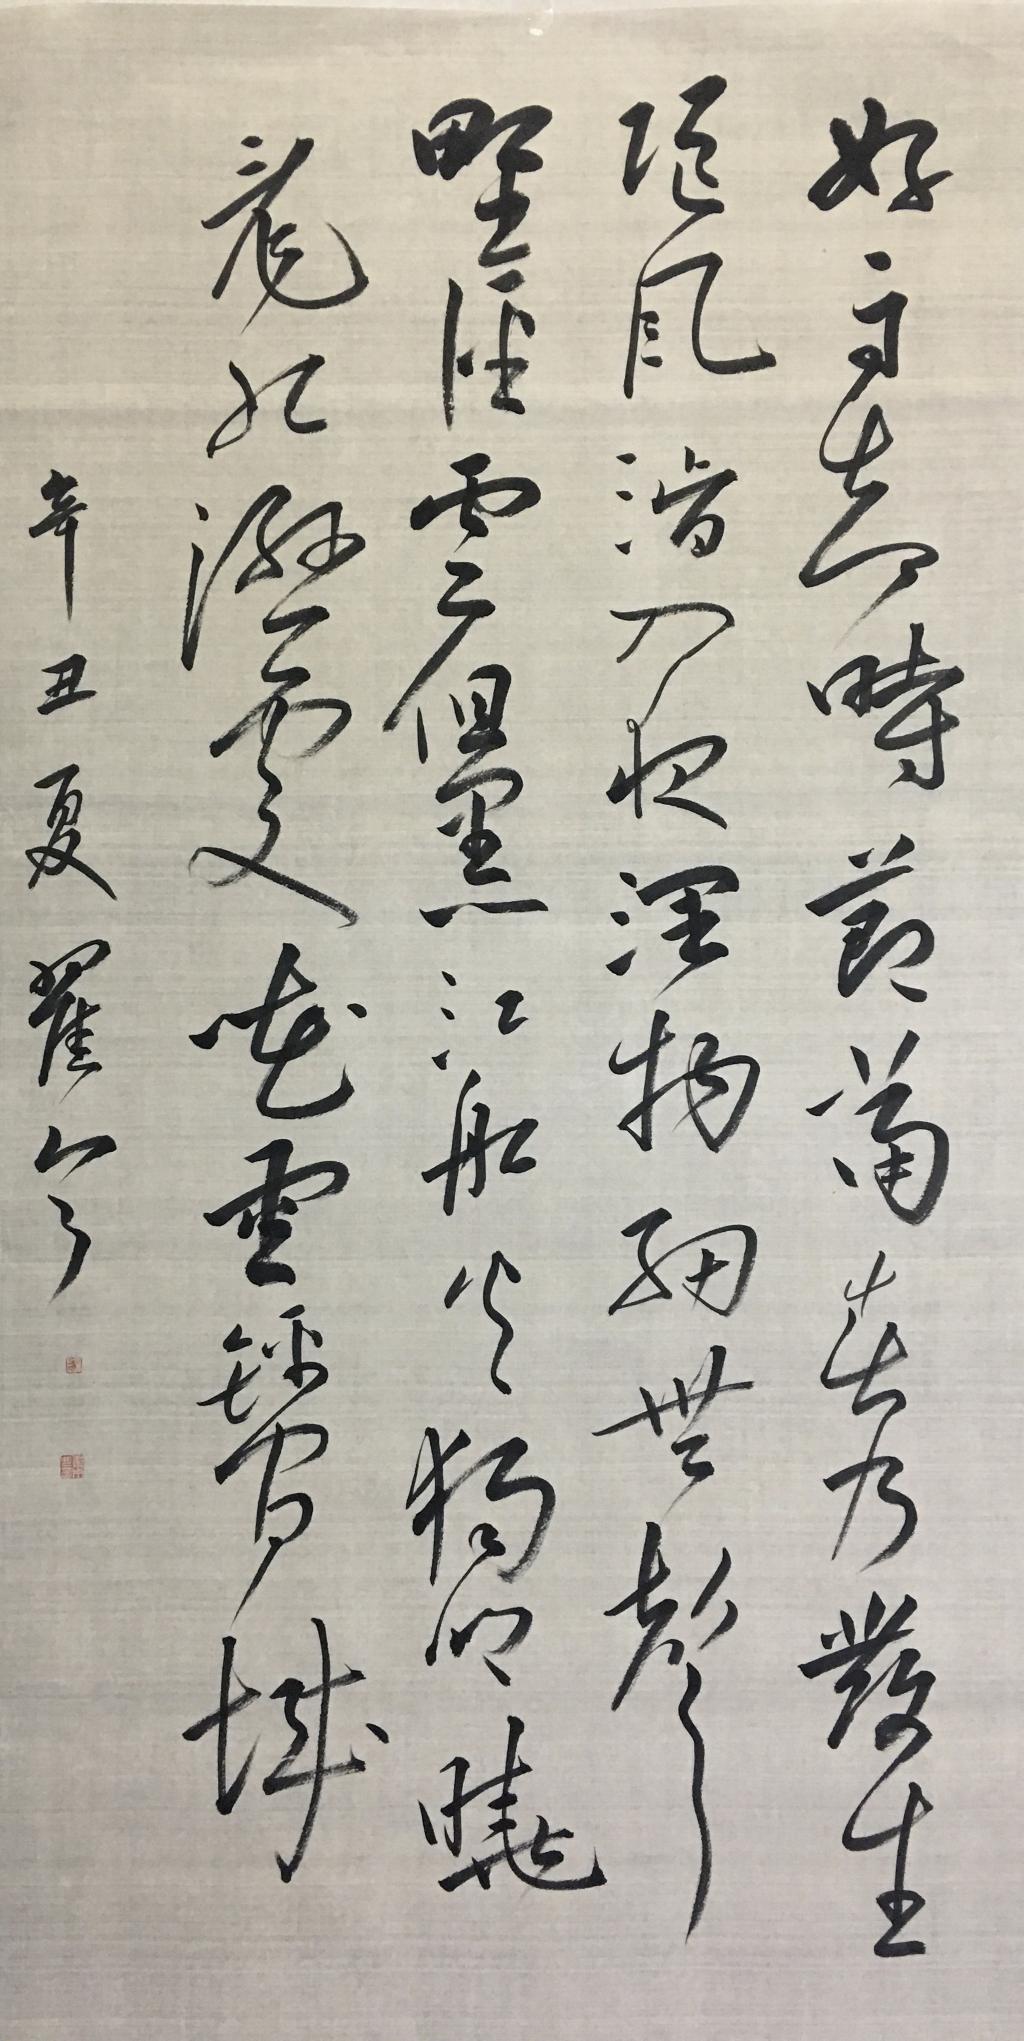 好雨知時節當春乃發生
隨風潛入夜潤物細無聲
野徑雲俱黑江船火獨明曉
看紅濕處花重錦官城
辛丑夏翟